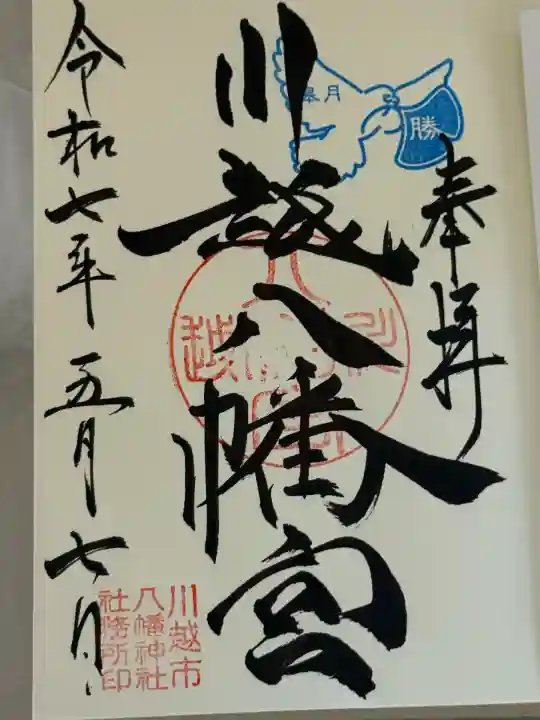 奉拝
皐月
勝
川越八幡宮
令和七年五月七日
川越市
八幡神社
社務所印